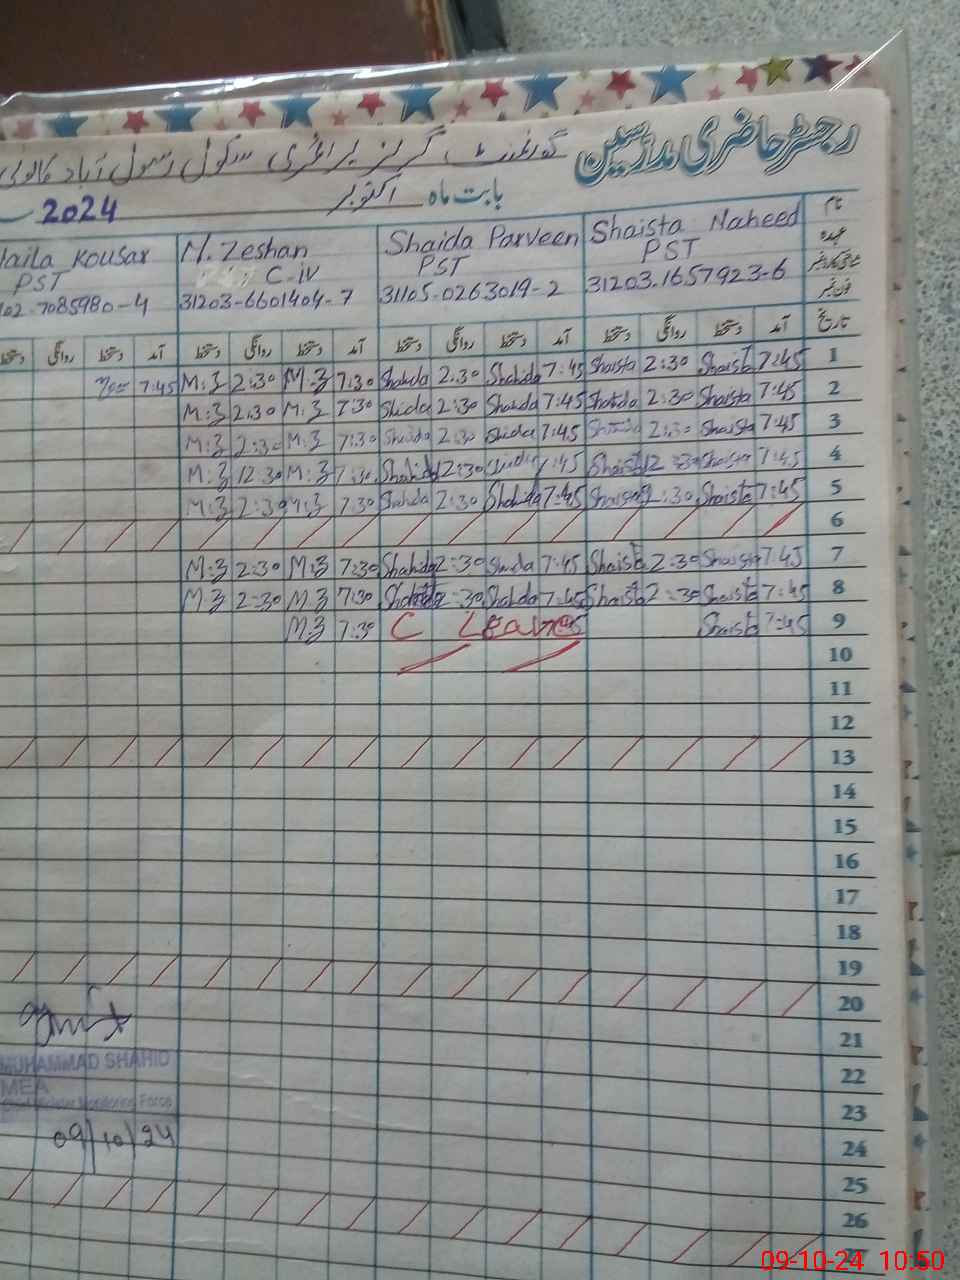 رجسٹر حاضری مدرسین گورنمنٹ گرلز پرائمری سکول رسول آباد کالونی
بابت ماہ اکتوبر 2024
نام Shaista Naheed Shaida Parveen M. Zeshan laila Kousar
عہدہ PST PST C-iv PST
31203.1657923-6 31105-0263019-2 31203-6601404-7 102-7085980-4
تاریخ آمد دستخط روانگی دستخط آمد دستخط روانگی دستخط آمد دستخط روانگی دستخط آمد دستخط روانگی دستخط
1 7:45 Shaista 2:30 Shaista 7:45 Shahida 2:30 Shahida 7:30 M:Z 2:30 M:Z 7:45
2 7:45 Shaista 2:30 7:45 Shahida 2:30 7:30 M:Z 2:30 M:Z
3 7:45 Shaista 2:30 7:45 2:30 7:30 M:Z 2:30 M:Z
4 7:45 Shaista 2:30 Shaista 7:45 2:30 Shahida 7:30 M:Z 2:30 M:Z
5 7:45 Shaista 2:30 Shaista 7:45 Shahida 2:30 Shahida 7:30 M:Z 2:30 M:Z
6
7 7:45 Shaista 2:30 Shaista 7:45 2:30 Shahida 7:30 M:Z 2:30 M:Z
8 7:45 Shaista 2:30 Shaista 7:45 2:30 7:30 M:Z 2:30 M:Z
9 7:45 Shaista C Leave 7:30 M:Z
10
11
12
13
14
15
16
17
18
19
20
21
MUHAMMAD SHAHID
22
MEA
Chief Minister Monitoring Force
23
09/10/24
24
25
26
27
09-10-24 10:50